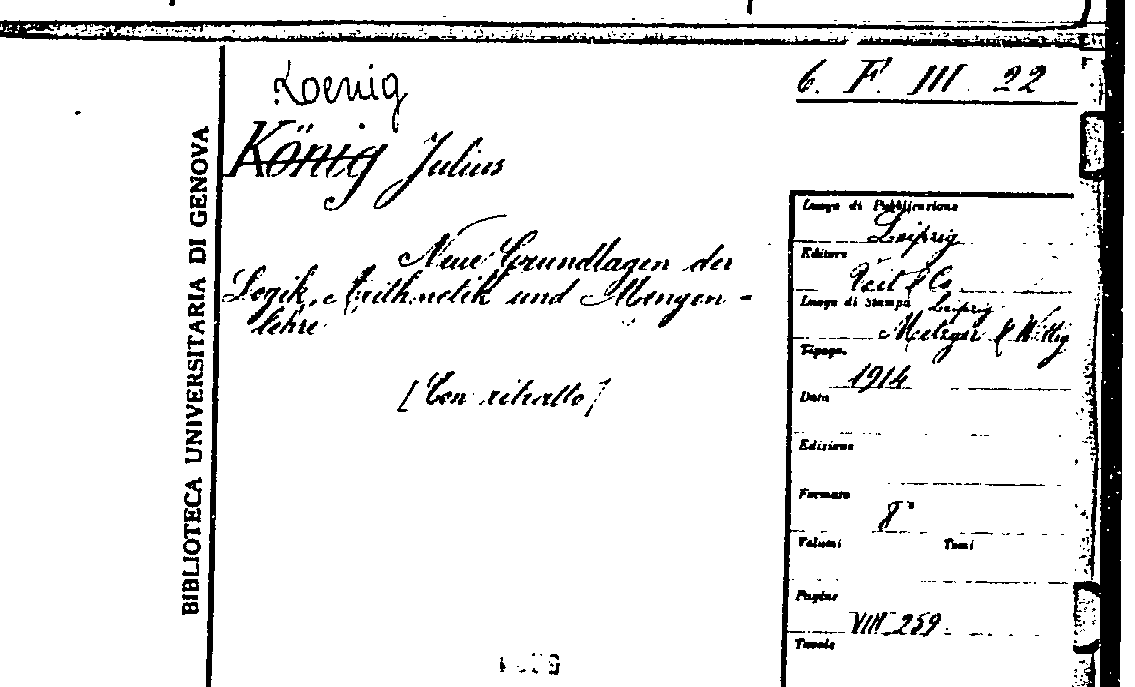 Koenig
6. F. III. 22
König Julius
BIBLIOTECA UNIVERSITARIA DI GENOVA
Neue Grundlagen der
Logik, Arithmetik und Mengen-
lehre
[Con ritratto]
Luogo di Pubblicazione
Leipzig
Editore
Veit & Co
Luogo di Stampa Leipzig
Metzger & Wittig
Tipogr.
1914
Data
Edizione
Formato
8°
Volumi Tomi
Pagine
VIII 259
Tavole